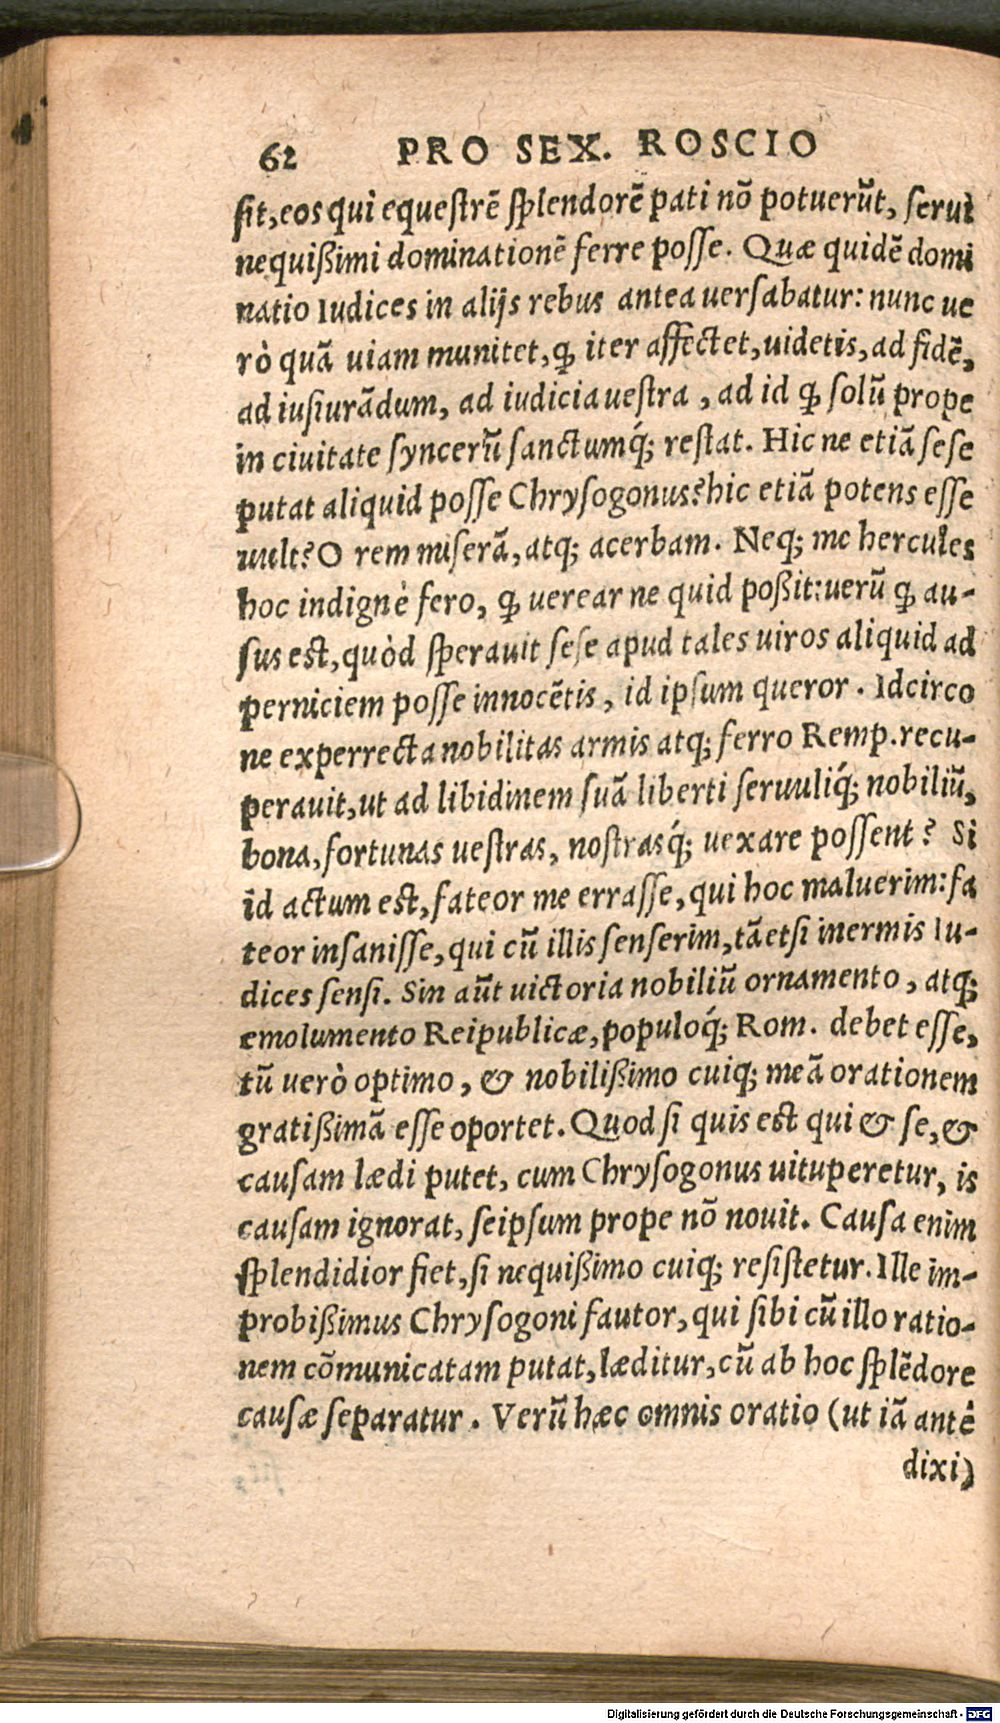 62 PRO SEX. ROSCIO
ſit, eos qui equeſtrē ſplendorē pati nō potuerūt, ſerui
nequißimi dominationē ferre poſſe. Quæ quidē domi
natio Iudices in alijs rebus antea uerſabatur: nunc ue
rò quā uiam munitet, ꝙ iter affectet, uidetis, ad fidē,
ad iuſiurādum, ad iudicia ueſtra, ad id ꝙ ſolū prope
in ciuitate ſyncerū ſanctumq́; reſtat. Hic ne etiā ſeſe
putat aliquid poſſe Chryſogonus? hic etiā potens eſſe
uult? O rem miſerā, atq; acerbam. Neq; me hercules
hoc indignè fero, ꝙ uerear ne quid poßit: uerū ꝙ au-
ſus eſt, quòd ſperauit ſeſe apud tales uiros aliquid ad
perniciem poſſe innocētis, id ipſum queror. Idcirco
ne experrecta nobilitas armis atq; ferro Remp. recu-
perauit, ut ad libidinem ſuā liberti ſeruuliq́; nobiliū,
bona, fortunas ueſtras, noſtrasq́; uexare poſſent? Si
id actum eſt, fateor me erraſſe, qui hoc maluerim: fa
teor inſaniſſe, qui cū illis ſenſerim, tāetſi inermis Iu-
dices ſenſi. Sin aūt uictoria nobiliū ornamento, atq;
emolumento Reipublicæ, populoq́; Rom. debet eſſe,
tū uerò optimo, & nobilißimo cuiq; meā orationem
gratißimā eſſe oportet. Quod ſi quis eſt qui & ſe, &
cauſam lædi putet, cum Chryſogonus uituperetur, is
cauſam ignorat, ſeipſum prope nō nouit. Cauſa enim
ſplendidior fiet, ſi nequißimo cuiq; reſiſtetur. Ille im-
probißimus Chryſogoni fautor, qui ſibi cū illo ratio-
nem cōmunicatam putat, læditur, cū ab hoc ſplēdore
cauſæ ſeparatur. Verū hæc omnis oratio (ut iā antè
dixi)
Digitalisierung gefördert durch die Deutsche Forschungsgemeinschaft - DFG